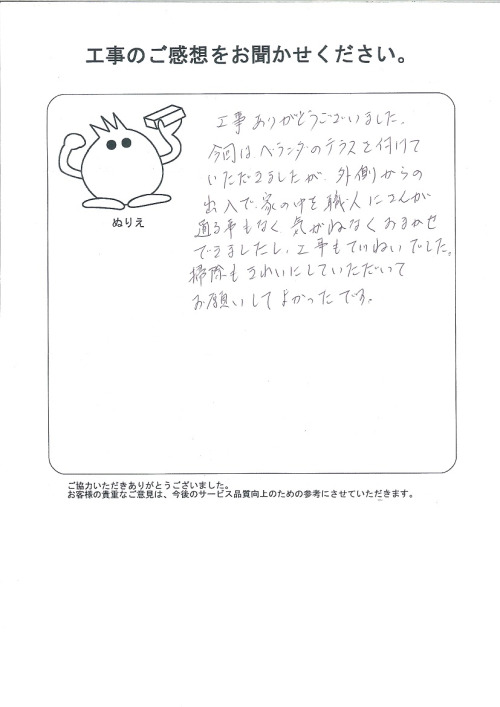 工事のご感想をお聞かせください。
工事ありがとうございました。
今回はベランダのテラスを付けて
いただきましたが、外側からの
出入で、家の中を職人さんが
通る事もなく、気がねなくおまかせ
できましたし、工事もていねいでした。
掃除もきれいにしていただいて
お願いしてよかったです。
ぬりえ
ご協力いただきありがとうございました。
お客様の貴重なご意見は、今後のサービス品質向上のための参考にさせていただきます。